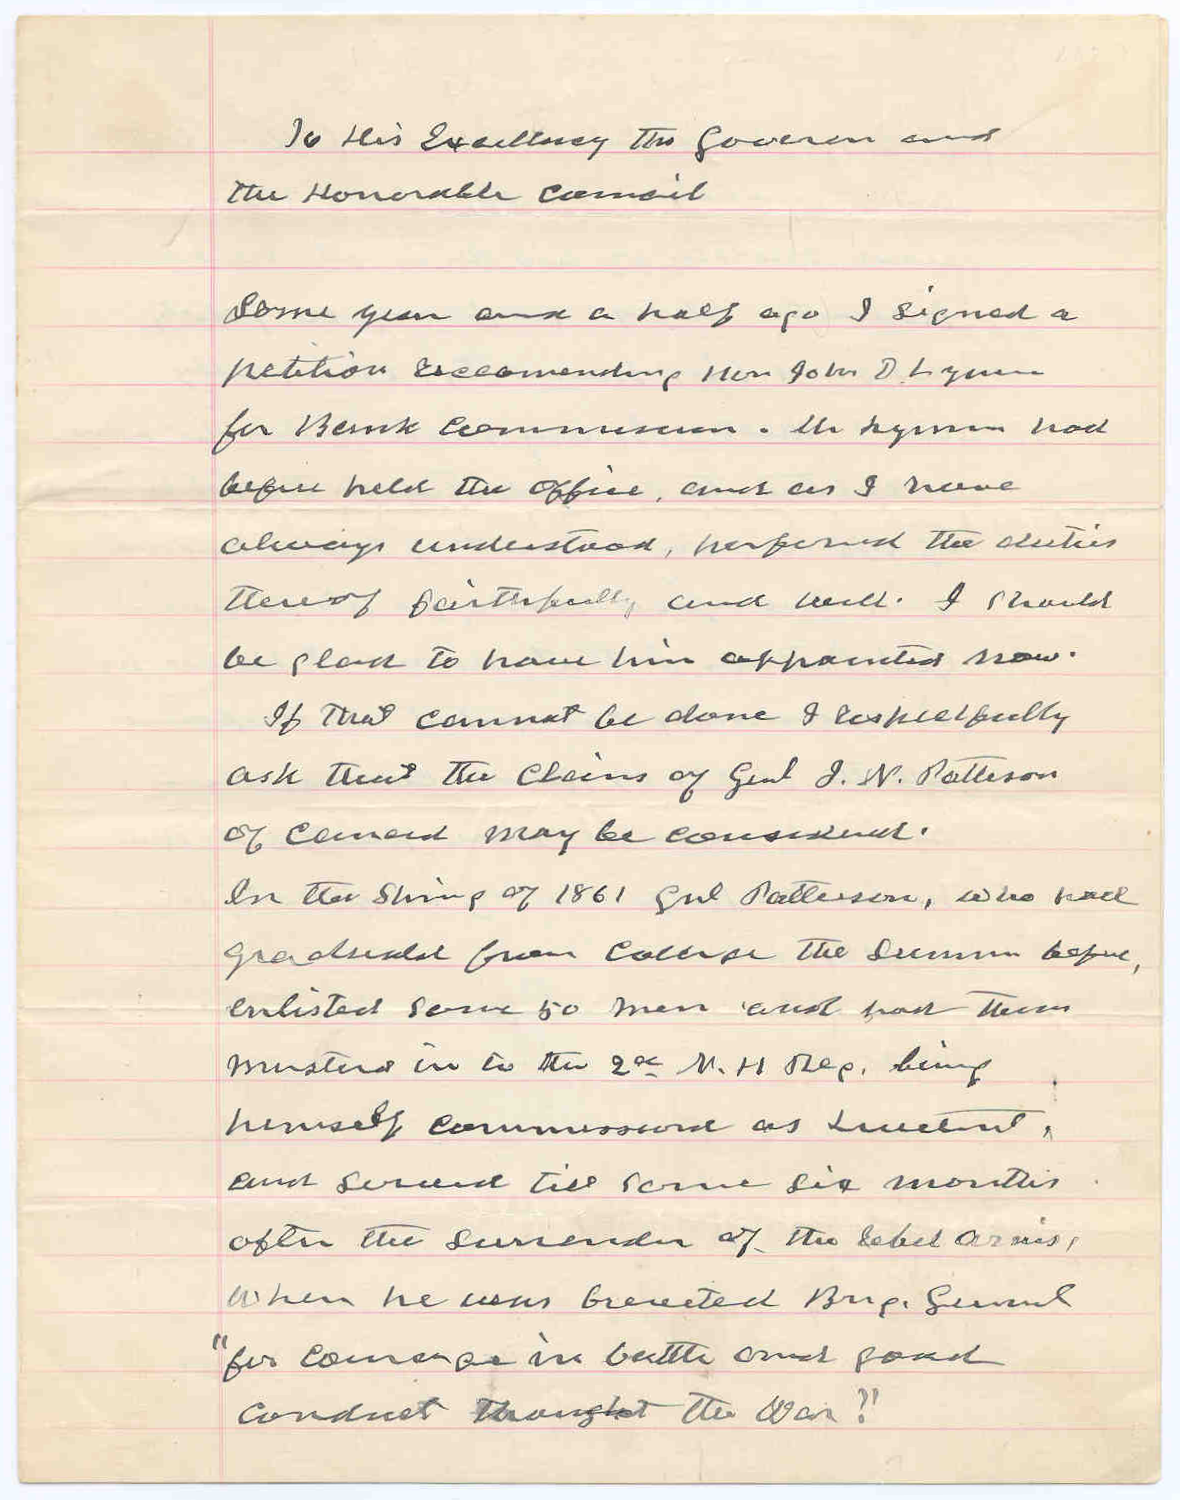 To His Excellency the Governor and
the Honorable Council
Some year and a half ago I signed a
petition reccomending Hon John D. Lyman
for Bank Commissioner. Mr Lyman had
before held the office, and as I have
always understood, performed the duties
thereof faithfully and well. I should
be glad to have him appointed now.
If that cannot be done I respectfully
ask that the Claims of Genl J. N. Patterson
of Concord may be considered.
In the Spring of 1861 Genl Patterson, who had
graduated from College the Summer before,
enlisted some 50 men and had them
mustered in to the 2d N. H Reg. being
himself commissioned as Lieutenant,
and served till some six months
after the surrender of the rebel armies,
when he was breveted Brig. General
"for courage in battle and good
conduct throughout the War"